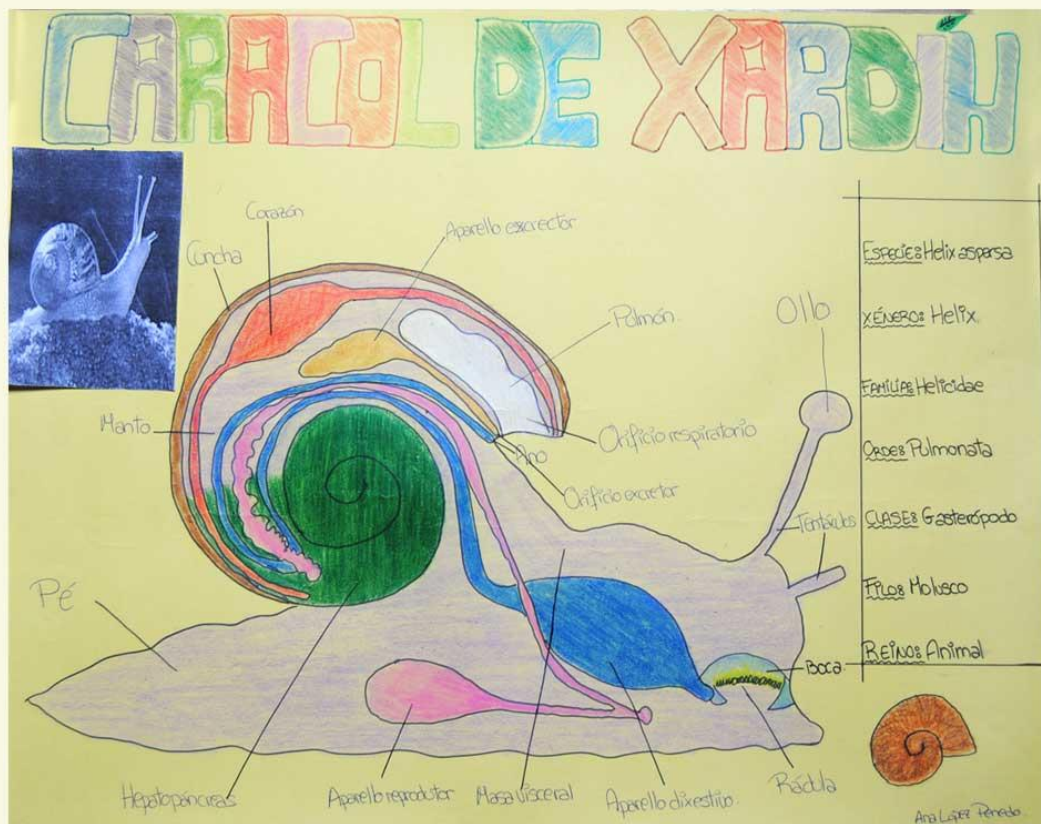 CARACOL DE XARDÍN
Corazón
Concha
Aparello escrector
Pulmón
Ollo
Manto
Orificio respiratorio
Ano
Orificio excretor
Tentáculos
Pé
Boca
Hepatopáncreas
Aparello reprodutor
Masa visceral
Aparello dixestivo
Rádula
ESPECIE: Helix aspersa
XÉNERO: Helix
FAMILIA: Helicidae
ORDE: Pulmonata
CLASE: Gasterópodo
FILO: Molusco
REINO: Animal
Ana López Penedo